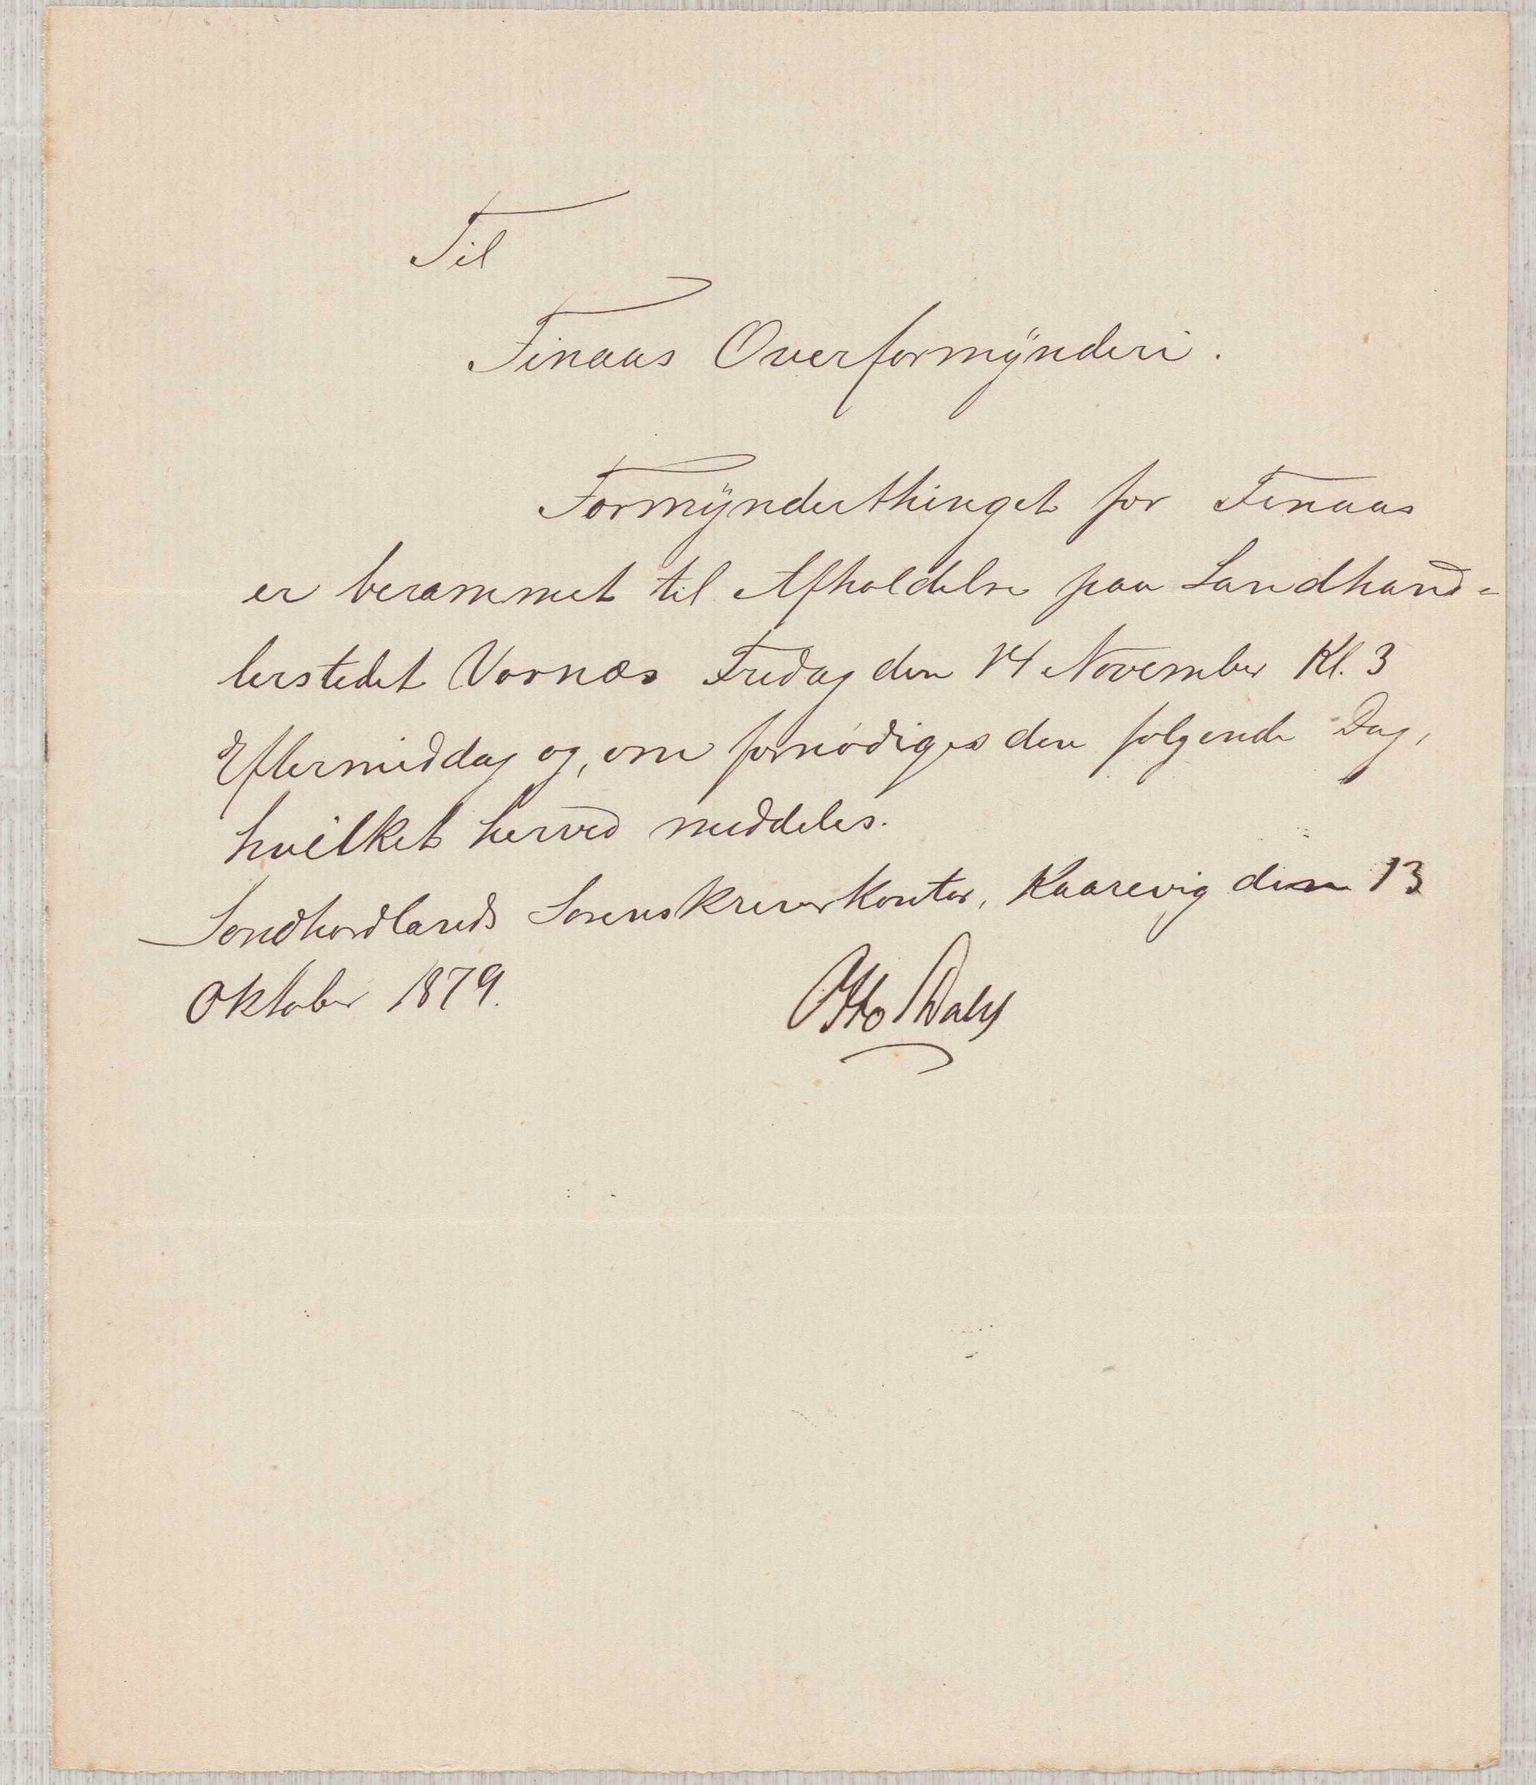 Til
Finaas Overformÿnderi.
Formÿnderthinget for Finaas
er berammet til Afholdelse paa Landhand-
lerstedet Vornæs Fredag den 14 November Kl. 3
Eftermiddag og, om fornødiges den følgende Dag,
hvilket herved meddeles.
Søndhordlands Sorenskriverkontor, Kaarevig den 13
Oktober 1879.
Otto